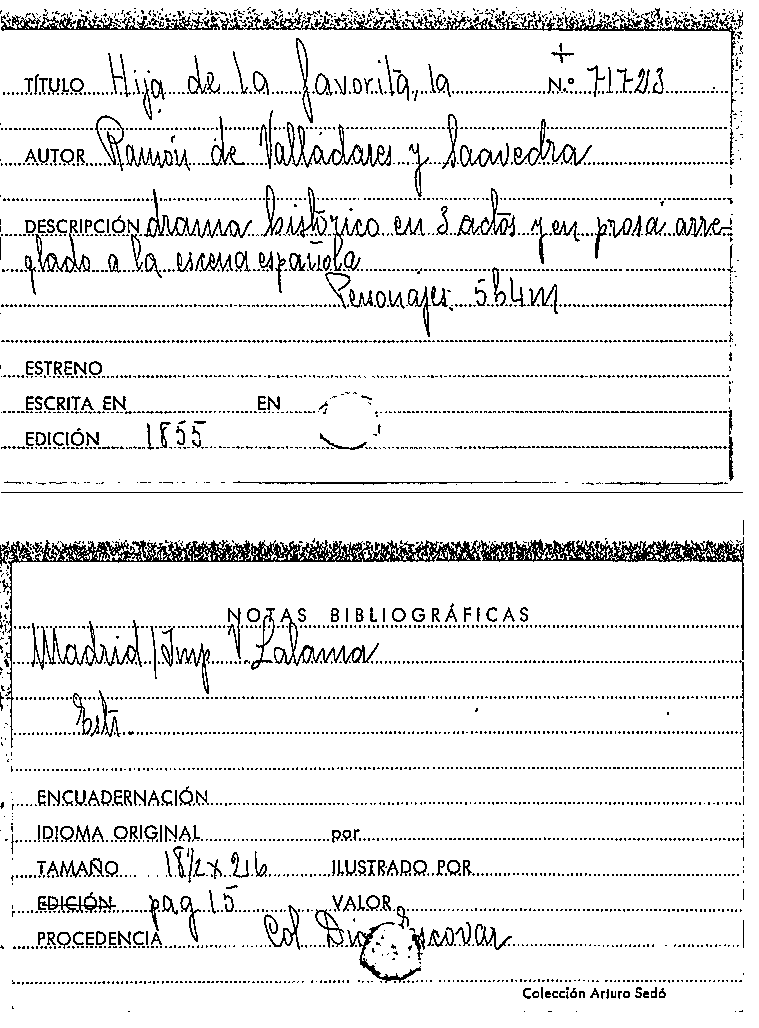 +
TÍTULO Hija de la favorita, la N.º 71723
AUTOR Ramón de Valladares y Saavedra
DESCRIPCIÓN drama histórico en 3 actos y en prosa arre-
glado a la escena española
Personajes. 5h4m
ESTRENO
ESCRITA EN EN
EDICIÓN 1855
NOTAS BIBLIOGRÁFICAS
Madrid/Imp V. Lalama
Estr.
ENCUADERNACIÓN
IDIOMA ORIGINAL por
TAMAÑO ILUSTRADO POR
EDICIÓN pag 15 VALOR
PROCEDENCIA Col Escovar
Colección Arturo Sedó